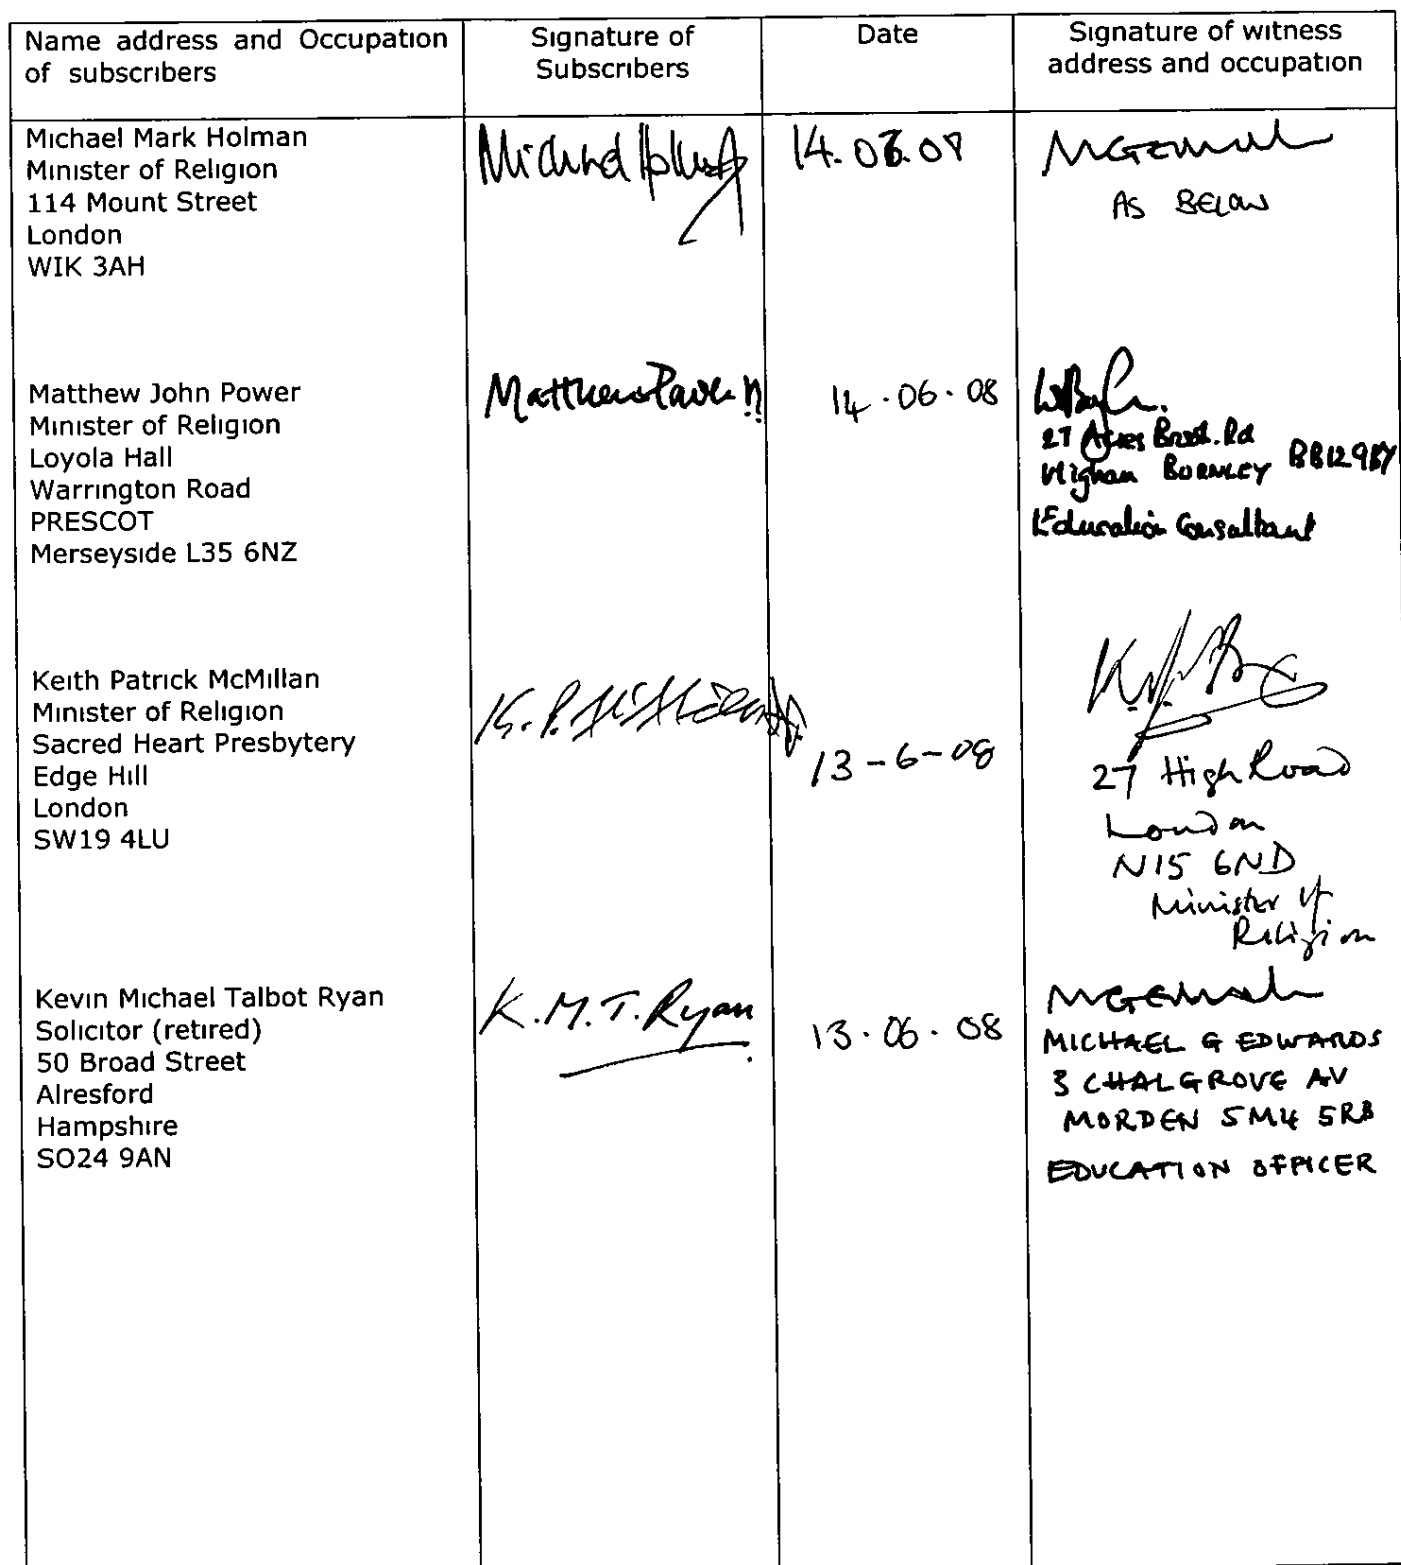 Name address and Occupation
of subscribers
Signature of
Subscribers
Date
Signature of witness
address and occupation
Michael Mark Holman
Minister of Religion
114 Mount Street
London
WIK 3AH
14.
AS BELOW
Matthew John Power
Minister of Religion
Loyola Hall
Warrington Road
PRESCOT
Merseyside L35 6NZ
Matthew Power
14.06.08
27 Acres Brook. Rd
Higham BURNLEY BB12 9BY
Education Consultant
Keith Patrick McMillan
Minister of Religion
Sacred Heart Presbytery
Edge Hill
London
SW19 4LU
K.P.
13-6-08
27 High Road
London
N15 6ND
Minister of
Religion
Kevin Michael Talbot Ryan
Solicitor (retired)
50 Broad Street
Alresford
Hampshire
SO24 9AN
K.M.T. Ryan
13.06.08
MICHAEL G EDWARDS
3 CHALGROVE AV
MORDEN SM4 5RB
EDUCATION OFFICER